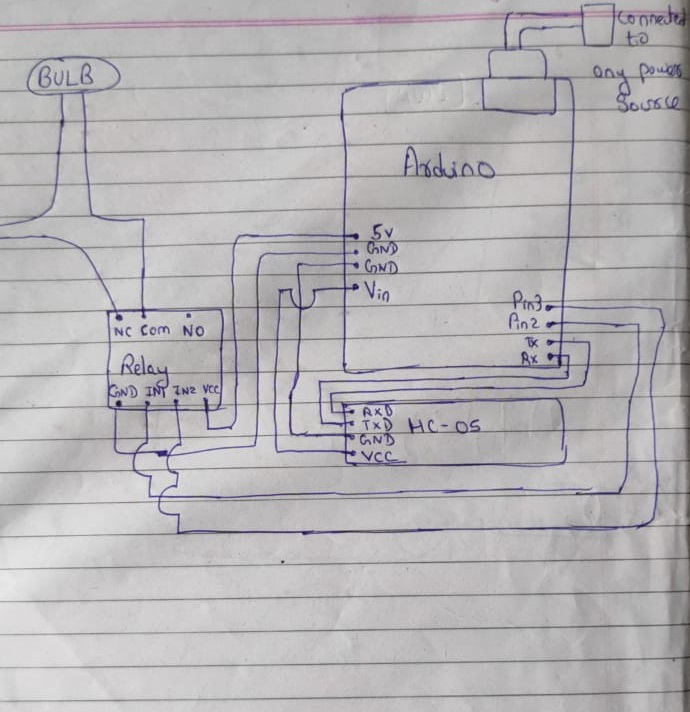 connected
to
any power
source
BULB
Arduino
5V
GND
GND
Vin
Pin3
Pin2
Tx
Rx
NC Com NO
Relay
GND IN1 IN2 VCC
RXD
TXD HC-05
GND
VCC